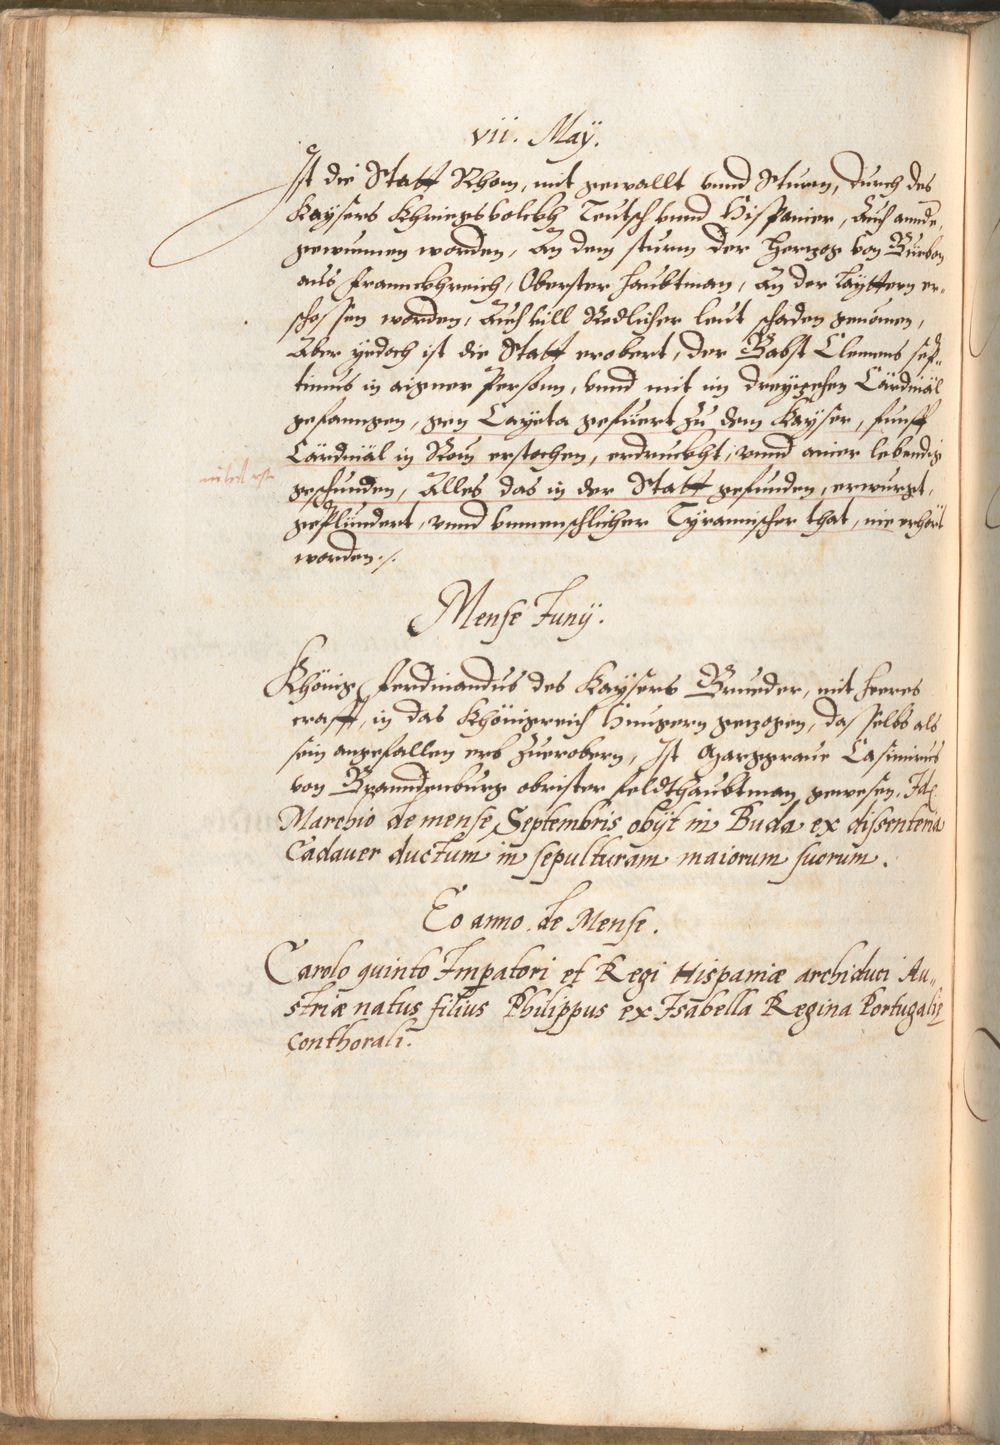 vii. May.
Ist die Statt Rhom, mit gewallt vnnd Sturm, durch des
Kaysers Khriegsvolckh Teutsch vnnd Hispanier, Auch annde,
gewunnen worden, An dem sturm der Hertzog von Bürbon
aus Franckhreich, Oberster Haubtman, An der Läyttern er-
schossen worden, Auch vill Redlicher leut schaden genomen,
Aber yedoch ist die Statt erobert, der Babst Clemens sep-
timus in aigner Person, vnnd mit im dreyzehen Cärdinäl
gefanngen, gen Cayeta gefüert zu dem Kayser, funff
Cärdinäl in Rom erstochen, erdruckht, vnnd ainer lebendig
geschunden, Alles das in der Statt gefunden, erwurgt,
geplündert, vnnd vnmenschlicher Tyrannischer that, nie erhört
worden ./.
Mense Junÿ.
Khönig Ferdinandus des Kaysers Brueder, mit heeres
crafft, in das Khönigreich Hungern gezogen, dasselbs als
sein angefallen erb zuerobern, Ist Marggraue Casimirus
von Branndenburg obrister feldthaubtman gewesen. Id
Marchio de mense Septembris obijt in Buda ex dissenteria
Cadauer ductum in sepulturam maiorum suorum.
Eo anno de Mense.
Carolo quinto Impatori et Regi Hispaniæ archiduci Au-
striæ natus filius Philippus ex Isabella Regina Portugalię
conthorali.